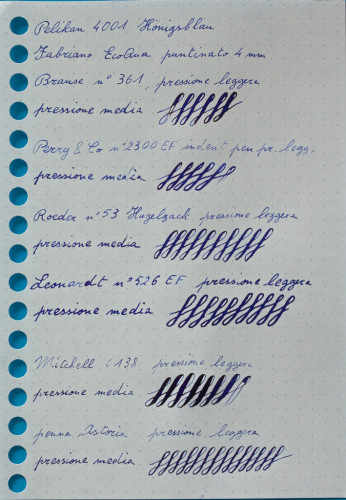 Pelikan 4001 Königsblau
Fabriano EcoQua puntinato 4 mm
Brause n° 361, pressione leggera
pressione media
Perry & Co n° 2300 EF indent pen pr. legg.
pressione media
Roeder n° 53 Kugelzack pressione leggera
pressione media
Leonardt n° 526 EF pressione leggera
pressione media
Mitchell 0138 pressione leggera
pressione media
penna Astoria pressione leggera
pressione media